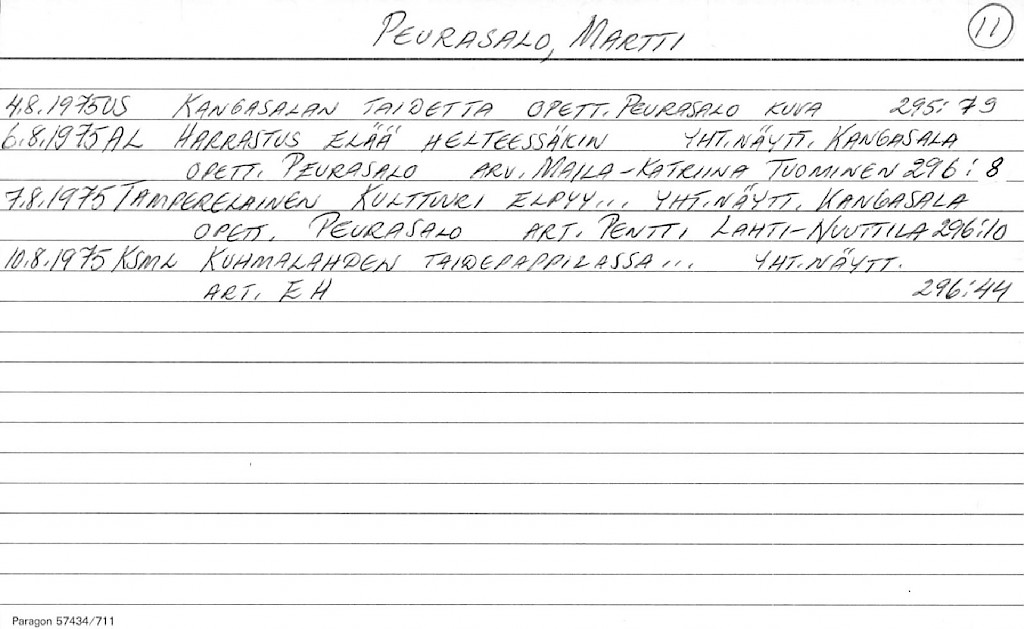 PEURASALO, MARTTI 11
4.8.1975 US KANGASALAN TAIDETTA OPETT. PEURASALO KUVA 295:79
6.8.1975 AL HARRASTUS ELÄÄ HELTEESSÄKIN YHT.NÄYTT. KANGASALA
OPETT. PEURASALO ARV. MAILA-KATRIINA TUOMINEN 296:8
7.8.1975 TAMPERELAINEN KULTTUURI ELPYY... YHT.NÄYTT. KANGASALA
OPETT. PEURASALO ART. PENTTI LAHTI-NUUTTILA 296:10
10.8.1975 KSML KUHMALAHDEN TAIDEPAPPILASSA... YHT.NÄYTT.
ART. EH 296:44
Paragon 57434/711